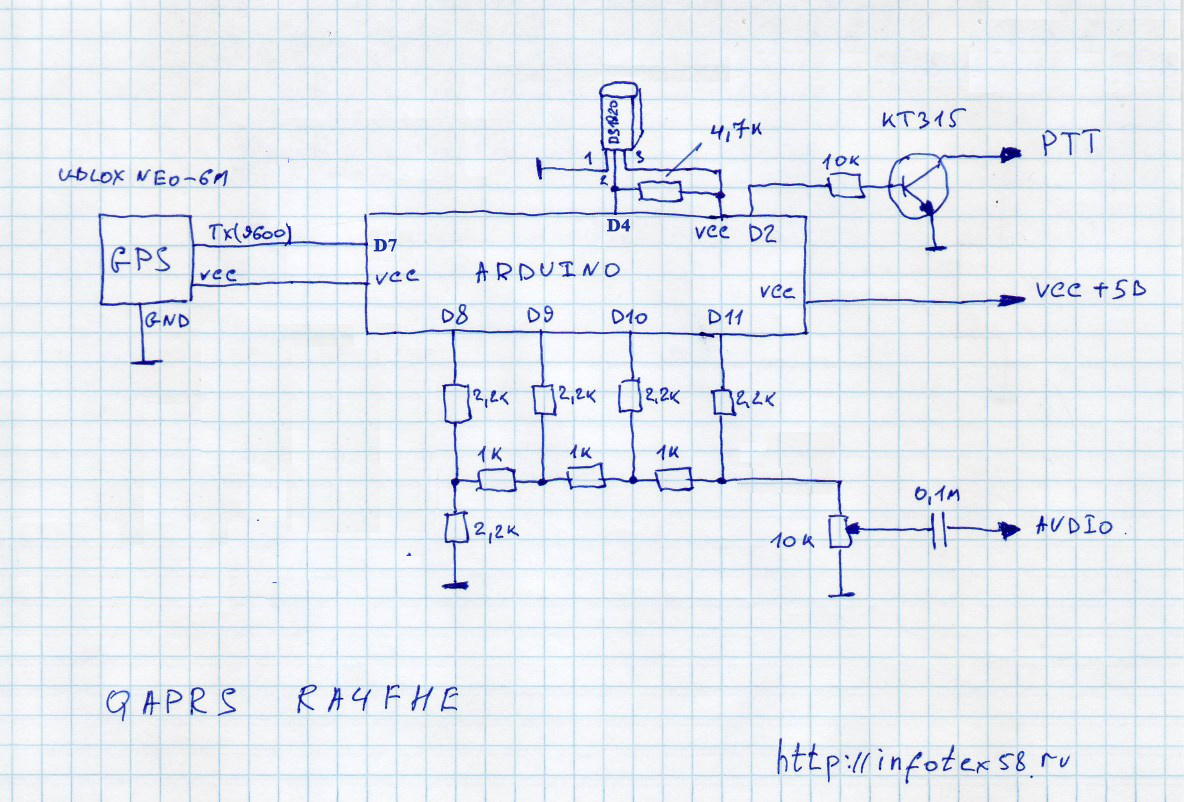 DS1820
4,7K
KT315
PTT
1
3
2
10K
UBLOX NEO-6M
Tx(9600)
D7
D4
VCC
D2
GPS
VCC
VCC
ARDUINO
VCC
VCC +5В
GND
D8
D9
D10
D11
2,2K
2,2K
2,2K
2,2K
1K
1K
1K
0,1м
2,2K
10K
AUDIO
QAPRS RA4FHE
http://infotex58.ru